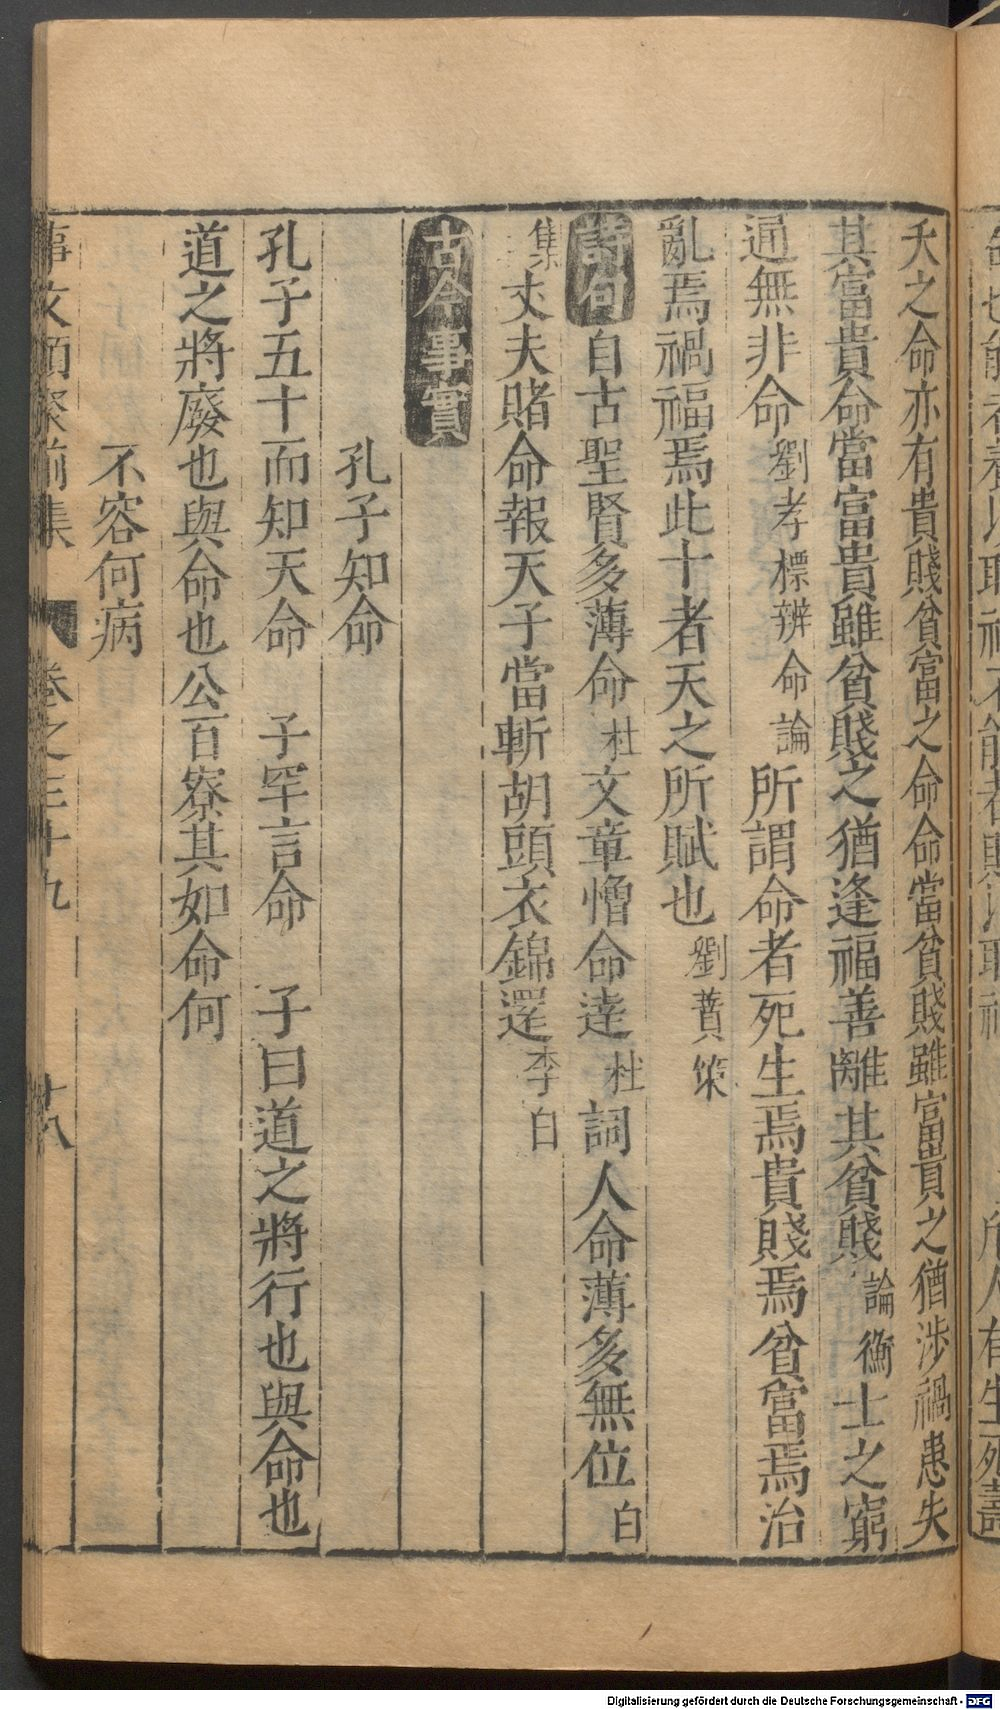 夭之命亦有貴賤貧富之命命當貧賤雖富貴之猶涉禍患失
其富貴命當富貴雖貧賤之猶逢福善離其貧賤論衡士之窮
通無非命劉孝標辨命論所謂命者死生焉貴賤焉貧富焉治
亂焉禍福焉此十者天之所賦也劉蕡策
詩句自古聖賢多薄命杜文章憎命達杜詞人命薄多無位白
集丈夫賭命報天子當斬胡頭衣錦還李白
古今事實
孔子知命
孔子五十而知天命 子罕言命 子曰道之將行也與命也
道之將廢也與命也公百寮其如命何
不容何病
事文類聚前集 卷之三十九 十八
Digitalisierung gefördert durch die Deutsche Forschungsgemeinschaft - DFG